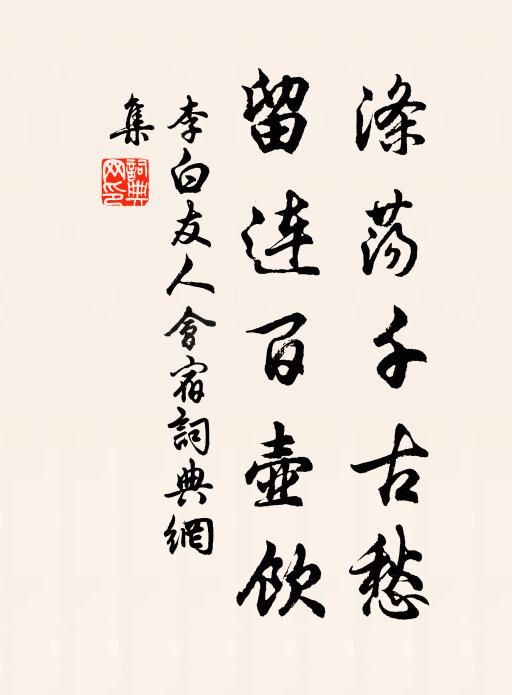 滌蕩千古愁
留連百壺飲
李白友人會宿詞典網
集
詞典網印